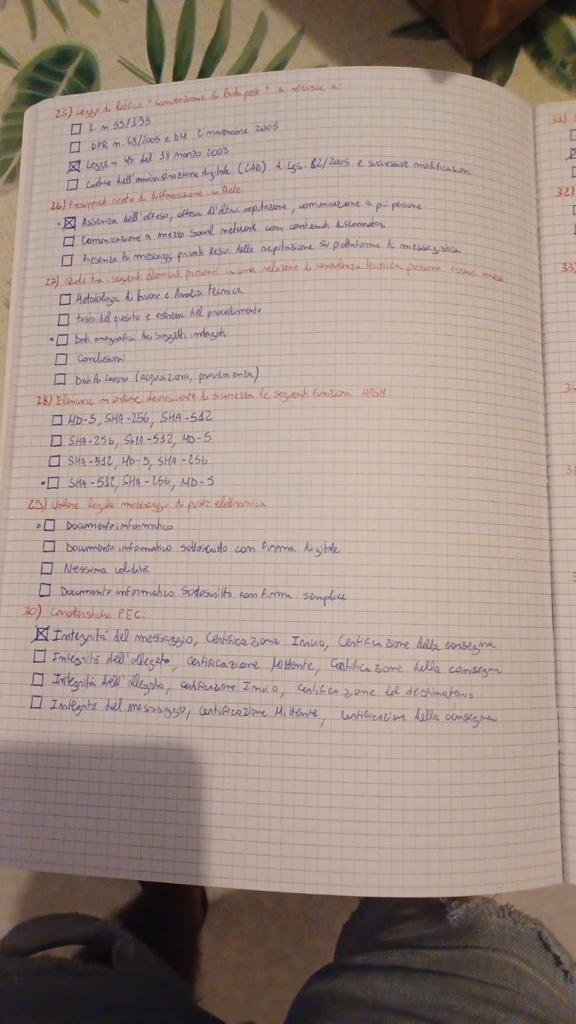 25) Legge di Ratifica "Convenzione di Budapest" si articola in:
L. n 59/195
DPR n. 68/2005 e DM 2 novembre 2005
Legge n 48 del 18 marzo 2008
Codice dell'amministrazione digitale (CAD) d. Lgs. 82/2005 e successive modificazioni
26) Presupposti reato di diffamazione in Rete
Assenza dell'offeso, offesa all'altrui reputazione, comunicazione a più persone
Comunicazione a mezzo Social network con contenuti diffamatori
Presenza tra messaggi privati lesivi della reputazione su piattaforme di messaggistica
27) Quale tra i seguenti elementi presenti in una relazione di consulenza tecnica possono essere
Metodologia di lavoro e Analisi tecnica
testo del quesito e estremi del procedimento
Dati anagrafici dei soggetti indagati
Conclusioni
Dati di lavoro (acquisizioni, provenienza)
28) Elencare in ordine decrescente di sicurezza le seguenti funzioni HASH
MD-5, SHA-256, SHA-512
SHA-256, SHA-512, MD-5
SHA-512, MD-5, SHA-256
SHA-512, SHA-256, MD-5
29) Valore legale messaggi di posta elettronica
Documento informatico
Documento informatico sottoscritto con firma digitale
Nessuna validità
Documento informatico Sottoscritto con firma semplice
30) Caratteristiche PEC:
Integrità del messaggio, Certificazione Invio, Certificazione della consegna
Integrità dell'allegato, certificazione Mittente, Certificazione della consegna
Integrità dell'allegato, certificazione Invio, certificazione del destinatario
Integrità del messaggio, Certificazione Mittente, certificazione della consegna
31)
32)
33)